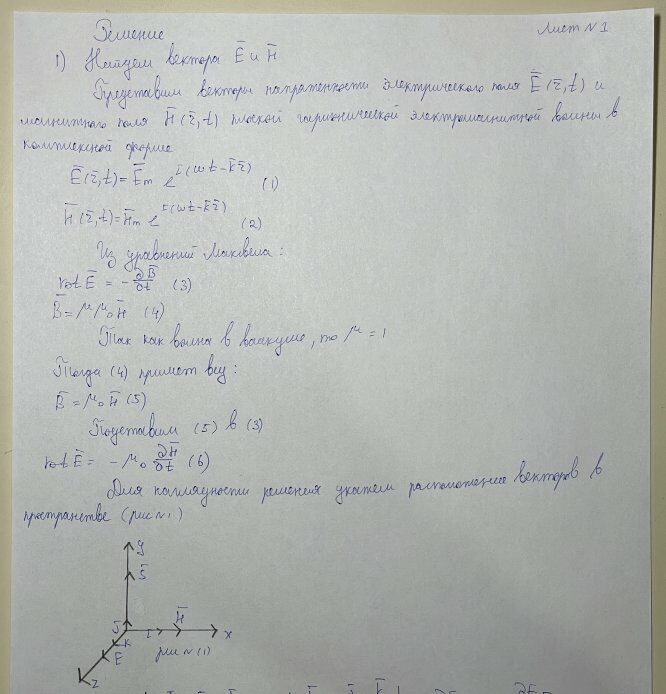 Решение Лист N 1
1) Найдем вектора E̅ и H̅
Представим векторы напряженности электрического поля E̅(r̅,t) и
магнитного поля H̅(r̅,t) плоской гармонической электромагнитной волны в
комплексной форме
E̅(r̅,t)=E̅m e^i(ωt-k̅r̅) (1)
H̅(r̅,t)=H̅m e^i(ωt-k̅r̅) (2)
Из уравнений Максвела:
rot E̅ = -∂B̅/∂t (3)
B̅=μμ₀H̅ (4)
Так как волна в вакууме, то μ=1
Тогда (4) примет вид:
B̅=μ₀H̅ (5)
Подставим (5) в (3)
rot E̅= -μ₀ ∂H̅/∂t (6)
Для наглядности решения укажем расположение векторов в
пространстве (рис N1)
y
S̅
j̅
H̅
i
x
k
E̅
рис N(1)
z